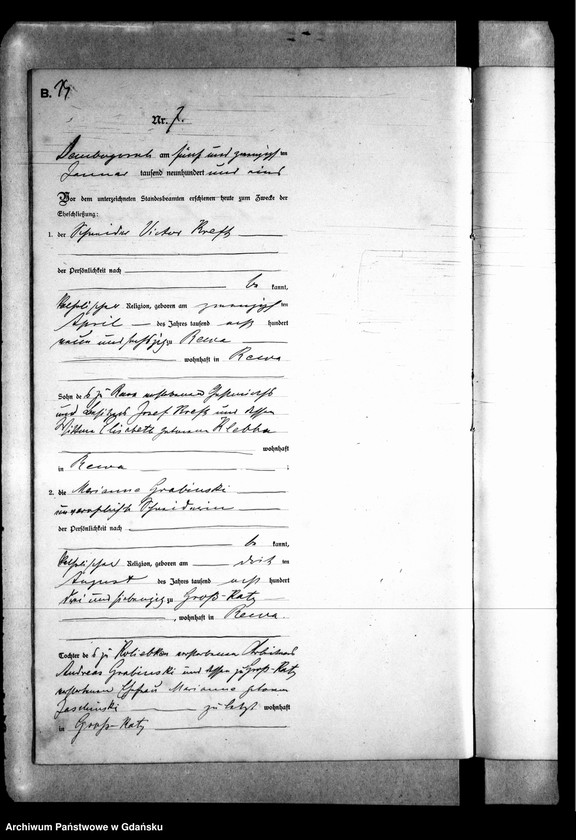 B.
Nr. 7.
Dembogorsch am fünf und zwanzigsten
Januar tausend neunhundert und eins
Vor dem unterzeichneten Standesbeamten erschienen heute zum Zwecke der
Eheschließung:
1. der Schneider Victor Kreft
der Persönlichkeit nach
be kannt,
katholischer Religion, geboren am zwanzigsten
April des Jahres tausend acht hundert
neun und sechszig zu Rewa
wohnhaft in Rewa
Sohn des zu Rewa verstorbenen
und Besitzers Josef Kreft und dessen
Wittwe Elisabeth geborenen Klebba
wohnhaft
in Rewa ;
2. die Marianna Grabinski
unverehelichte Schneiderin
der Persönlichkeit nach
be kannt,
katholischer Religion, geboren am dritten
August des Jahres tausend acht hundert
drei und siebenzig zu Groß-Katz
, wohnhaft in Rewa.
Tochter des zu Koliebken verstorbenen Arbeiters
Andreas Grabinski und dessen zu Groß-Katz
verstorbenen Ehefrau Marianna geborenen
Jaschinski zuletzt wohnhaft
in Groß-Katz
Archiwum Państwowe w Gdańsku